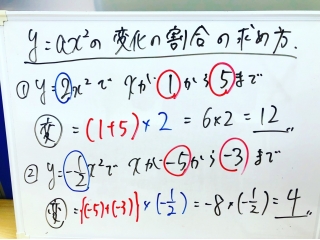 y=ax²の変化の割合の求め方.
① y=2x²で xが1から5まで
変 =(1+5)×2 = 6×2 = 12
② y=-1/2x²で xが-5から-3まで
変 ={(-5)+(-3)}×(-1/2) = -8×(-1/2) = 4